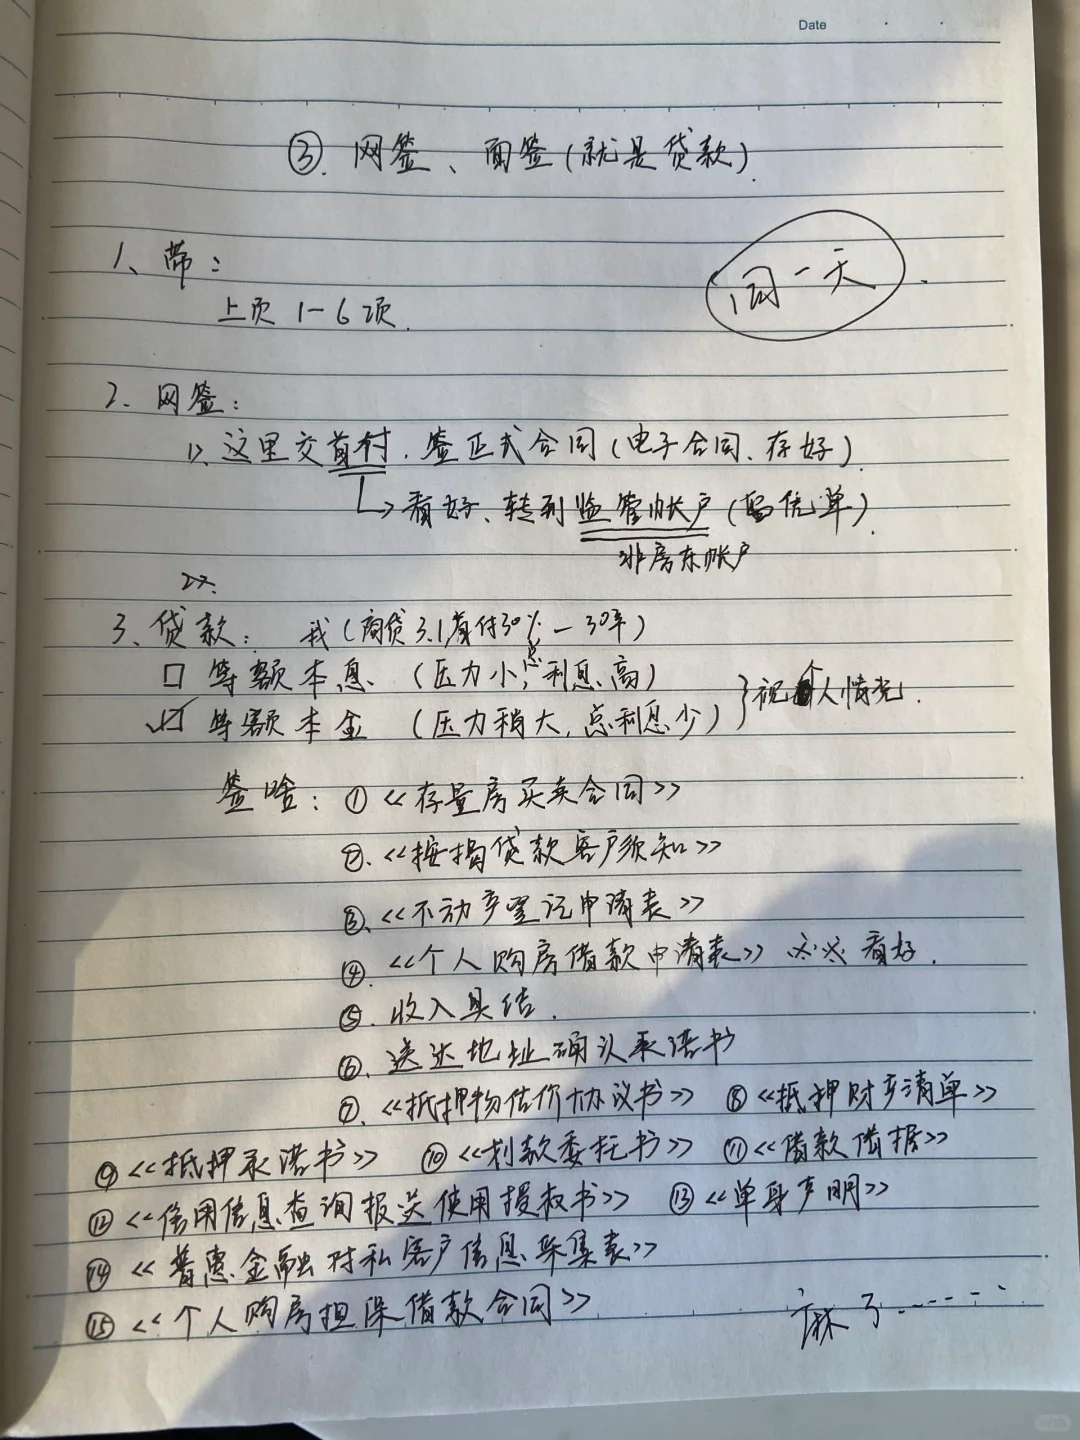 Date
③. 网签、面签(就是贷款).
1、带:
同一天.
上页 1-6项.
2. 网签:
1>. 这里交首付. 签正式合同(电子合同、存好).
↳ 看好、转到监管帐户(留凭单).
非房东帐户
2>.
3. 贷款: 我(商贷3.1首付30%—30年)
□ 等额本息 (压力小,总利息高)
☑ 等额本金 (压力稍大,总利息少) } 视个人情况.
签啥: ①《存量房买卖合同》
②.《按揭贷款客户须知》
③.《不动产登记申请表》
④.《个人购房借款申请表》 看好.
⑤. 收入具结.
⑥. 送达地址确认承诺书
⑦.《抵押物估价协议书》 ⑧《抵押财产清单》
⑨《抵押承诺书》 ⑩《划款委托书》 ⑪《借款借据》
⑫《信用信息查询报送使用授权书》 ⑬《单身声明》
⑭《普惠金融对私客户信息采集表》
⑮《个人购房担保借款合同》
麻了……